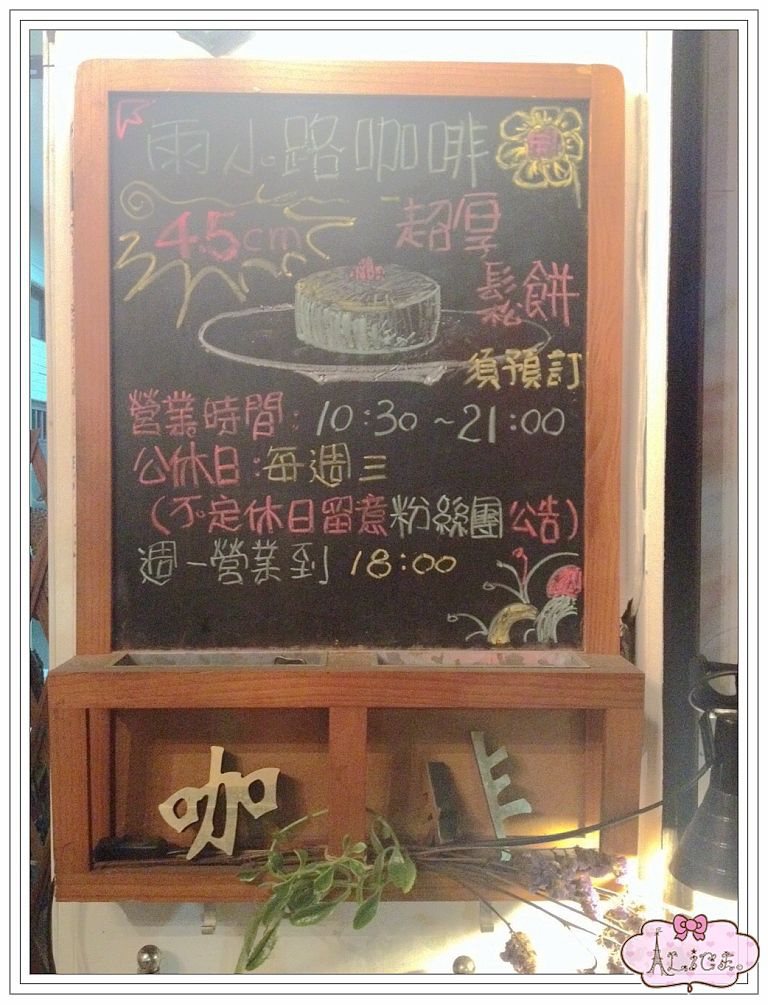 雨小路咖啡
4.5cm
超厚
鬆餅
須預訂
營業時間：10:30~21:00
公休日：每週三
(不定休日留意粉絲團公告)
週一營業到 18:00
咖
ALICE.